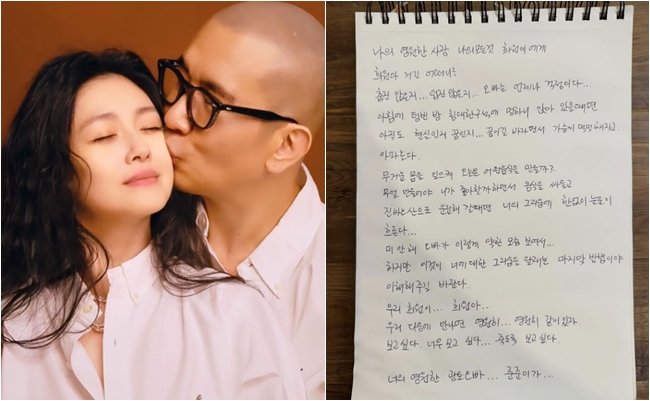 나의 영원한 사랑 나의모든것 희원이에게
희원아 거긴 어떠니?
춥진 않은지... 덥진 않은지... 오빠는 언제나 걱정이다...
아침에 텅빈 방 침대한구석에 멍하니 앉아 있을때면
아직도 현실인지 꿈인지... 꿈이길 바라면서 가슴이 먹먹해지고.
아파온다.
무거운 몸을 일으켜 오늘은 어떤음식을 만들까?
뭘 만들어야 니가 좋아할까하면서 음식을 싸들고
진바오산으로 운전해 갈때면 너의 그리움에 한없이 눈물이
흐른다...
미안해 오빠가 이렇게 약한 모습 보여서...
하지만 이것이 너에대한 그리움을 달래는 마지막 방법이야
이해해주길 바란다.
우리 희원이... 희원아...
우리 다음에 만나면 영원히... 영원히 같이있자.
보고싶다. 너무 보고 싶다... 죽도록 보고싶다.
너의 영원한 광토오빠... 준준이가...